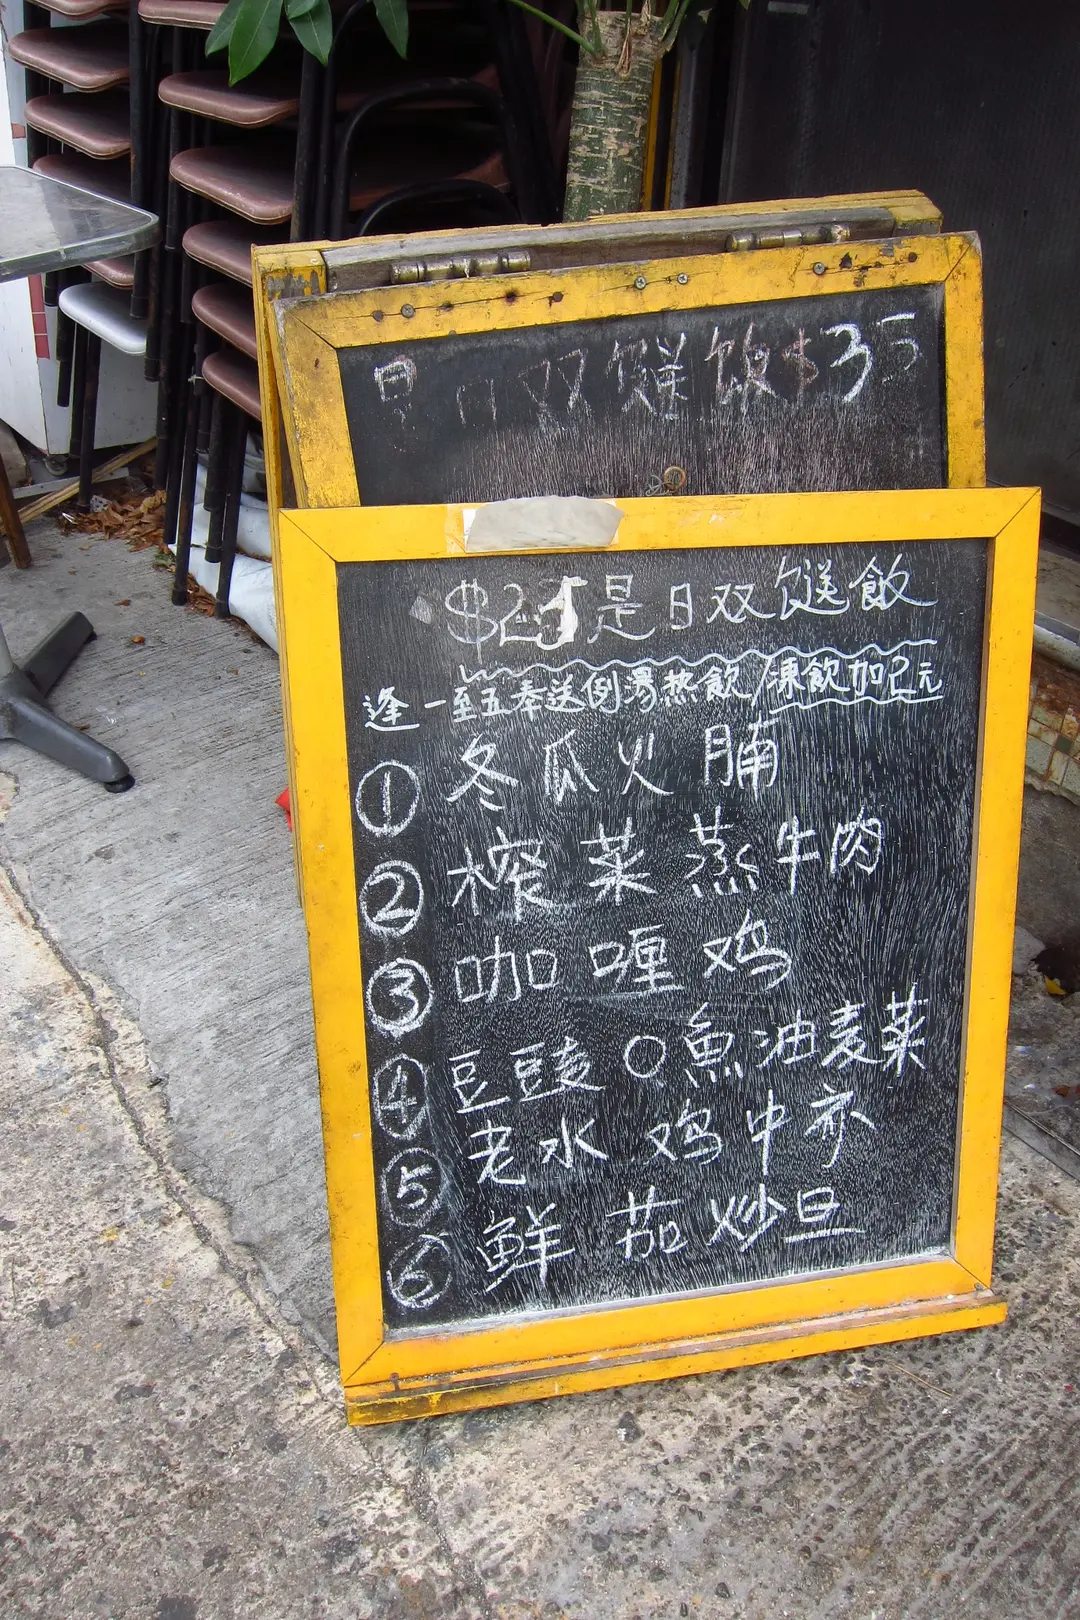 是日双餸飯$35
$25是日双餸飯
逢一至五奉送例湯热飲/凍飲加2元
① 冬瓜火腩
② 榨菜蒸牛肉
③ 咖喱鸡
④ 豆豉〇魚油麦菜
⑤ 老水鸡中亦
⑥ 鲜茄炒旦